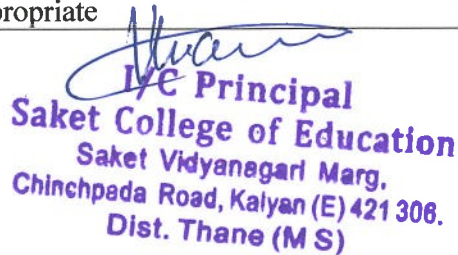 propriate
I/C Principal
Saket College of Education
Saket Vidyanagari Marg,
Chinchpada Road, Kalyan (E) 421 306.
Dist. Thane (M S)